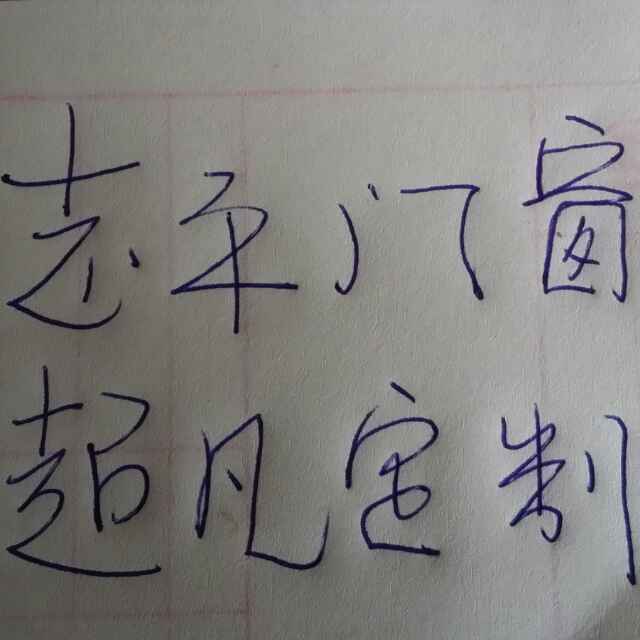 志平门窗
超凡定制